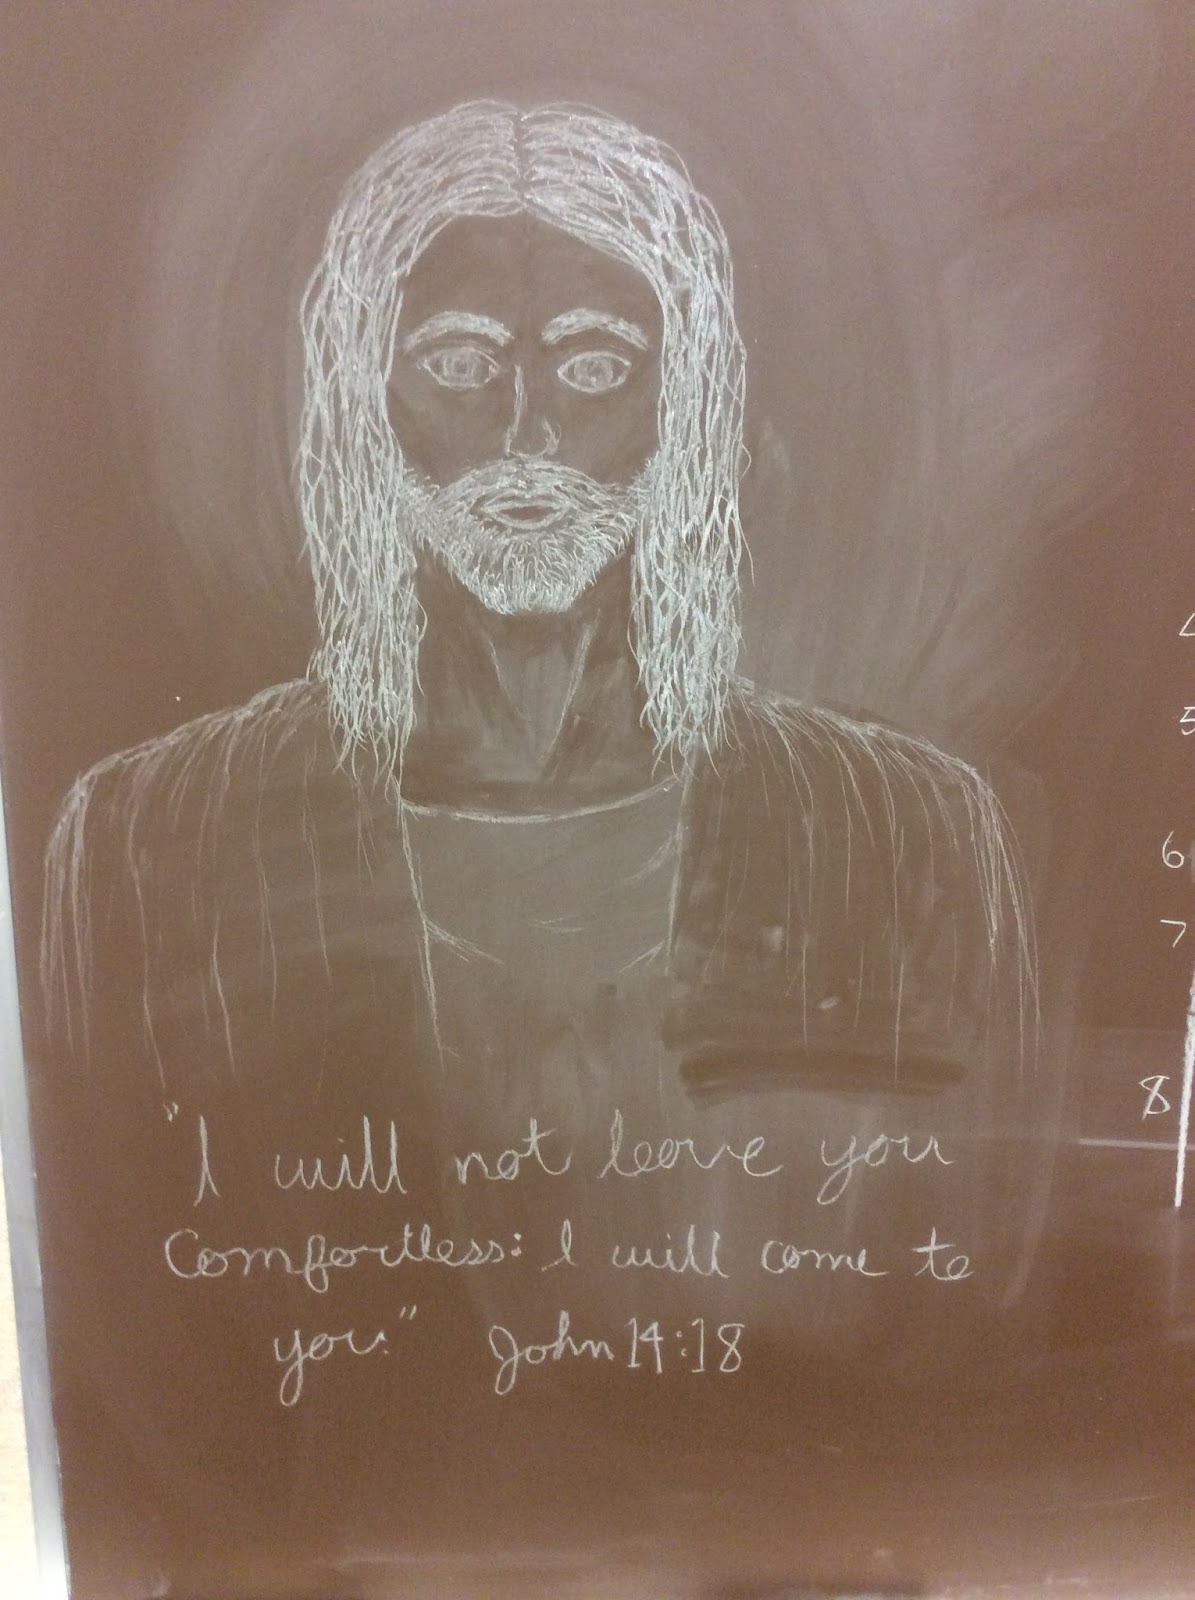 "I will not leave you
Comfortless: I will come to
you." John 14:18
5
6
7
8